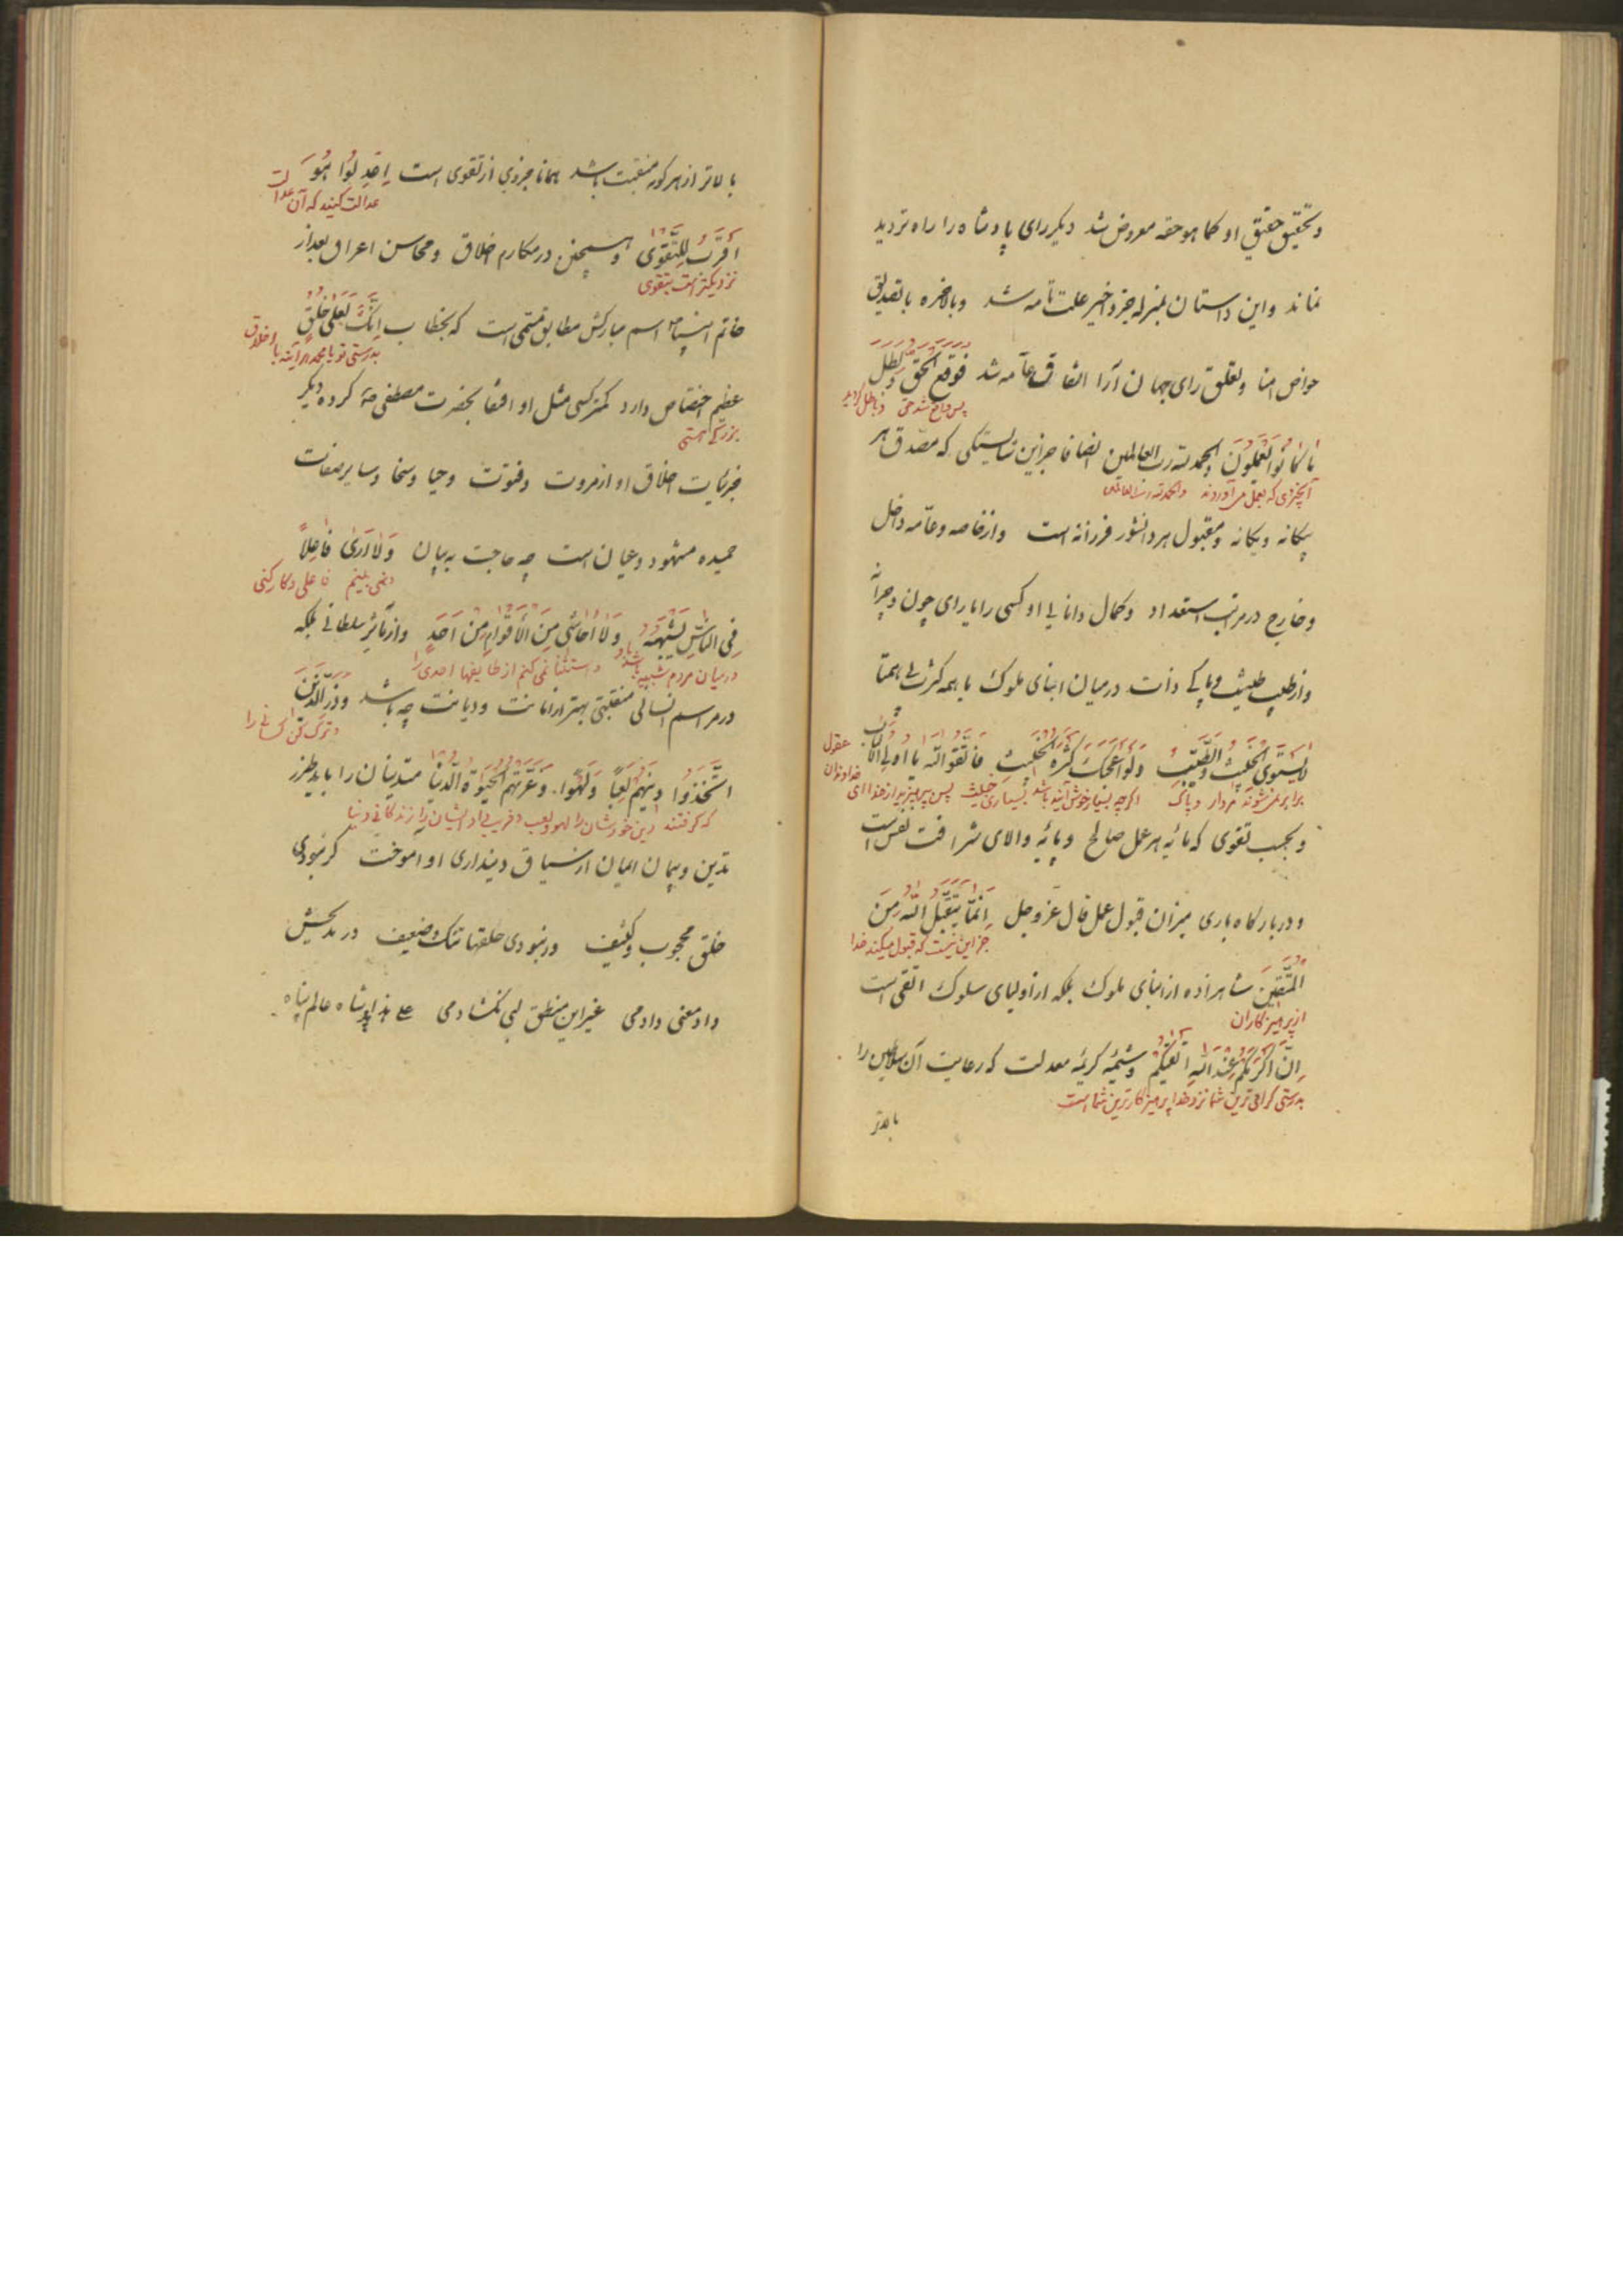 و تحقیق حقیق او کما هو حقه معروض شد دیگر رای پادشاه را راه تردید
نماند و این داستان بمنزله جزو اخیر علت تامه شد و بالاخره با تصدیق
خواص امنا و تعلق رای جهان آرا اتفاق عامه شد فَوَقَعَ الْحَقُّ وَبَطَلَ
پس واقع شد حق و باطل گردید
مَا كَانُوا يَعْمَلُونَ والحمد لله رب العالمین انصافا جز این شایستگی که مصدق هر
آنچیزی که بعمل می آوردند والحمد لله رب العالمین
بیگانه و یگانه و مقبول هر دانشور فرزانه است و از خاصه و عامه داخل
و خارج در مراتب استعداد و کمال دانایی او کسی را یارای چون و چرا نه
و از طیب طینت و پاکی ذات در میان ابنای ملوک با همه کثرت بی همتا
لَا يَسْتَوِي الْخَبِيثُ وَالطَّيِّبُ وَلَوْ أَعْجَبَكَ كَثْرَةُ الْخَبِيثِ فَاتَّقُوا اللَّهَ يَا أُولِي الْأَلْبَابِ
برابر نمی شوند مردار و پاک اگر چه بسیار خوش آینده باشد بسیاری خبیث پس بپرهیزید از خدا ای خداوندان عقول
و بحسب تقوی که مایه هر عمل صالح و پایه والای شرافت نفس است
و در بارگاه باری میزان قبول عمل قال عز و جل إِنَّمَا يَتَقَبَّلُ اللَّهُ مِنَ
جز این نیست که قبول میکند خدا
الْمُتَّقِينَ شاهزاده از ابنای ملوک بلکه از اولیای سلوک اتقی است
از پرهیزکاران
إِنَّ أَكْرَمَكُمْ عِنْدَ اللَّهِ أَتْقَيكُمْ و شیمهٔ کریمهٔ معدلت که رعایت آن سلاطین را
بدرستی گرامی ترین شما نزد خدا پرهیزکارترین شما است
بالاتر
بالاتر از هر گونه منقبت باشد همانا جزوی از تقوی است اِعْدِلُوا هُوَ
عدالت کنید که آن عدالت
أَقْرَبُ لِلتَّقْوَى و همچنین در مکارم اخلاق و محاسن اعراق بعد از
نزدیکتر است بتقوی
خاتم انبیا اسم مبارکش مطابق مسمی است که بخطاب إِنَّكَ لَعَلَى خُلُقٍ
بدرستی تو یا محمد هر آینه با اخلاق
عظیم اختصاص دارد کمتر کسی مثل او اقتفا بحضرت مصطفی کرده دیگر
بزرگ هستی
جزئیات اخلاق او از مروت و فتوت و حیا و سخا و سایر صفات
حمیده مشهود و عیان است چه حاجت به بیان وَلَا أَرَى فَاعِلًا
و نمی بینم فاعلی و کارکنی
فِي النَّاسِ يُشْبِهُهُ وَلَا أُحَاشِي مِنَ الْأَقْوَامِ مِنْ أَحَدٍ و از مآثر سلطانی بلکه
در میان مردم شبیه باو باشد و استثنا نمی کنم از طایفها احدی را
در مراسم انسانی منقبتی بهتر از امانت و دیانت چه باشد وَذَرِ الَّذِينَ
و ترک کن کسانی را
اتَّخَذُوا دِينَهُمْ لَعِبًا وَلَهْوًا وَغَرَّتْهُمُ الْحَيَوةُ الدُّنْيَا متدینان را باید طرز
که گرفتند دین خودشان را لهو و لعب و فریب داد ایشان را زندگانی دنیا
تدین و پیمان ایمان از سیاق دینداری او آموخت گر نبودی
خلق محجوب و کثیف ور نبودی حلقها تنگ و ضعیف در مدیحش
داد معنی دادمی غیر این منطق لبی بگشادمی علی هذا پادشاه عالم پناه